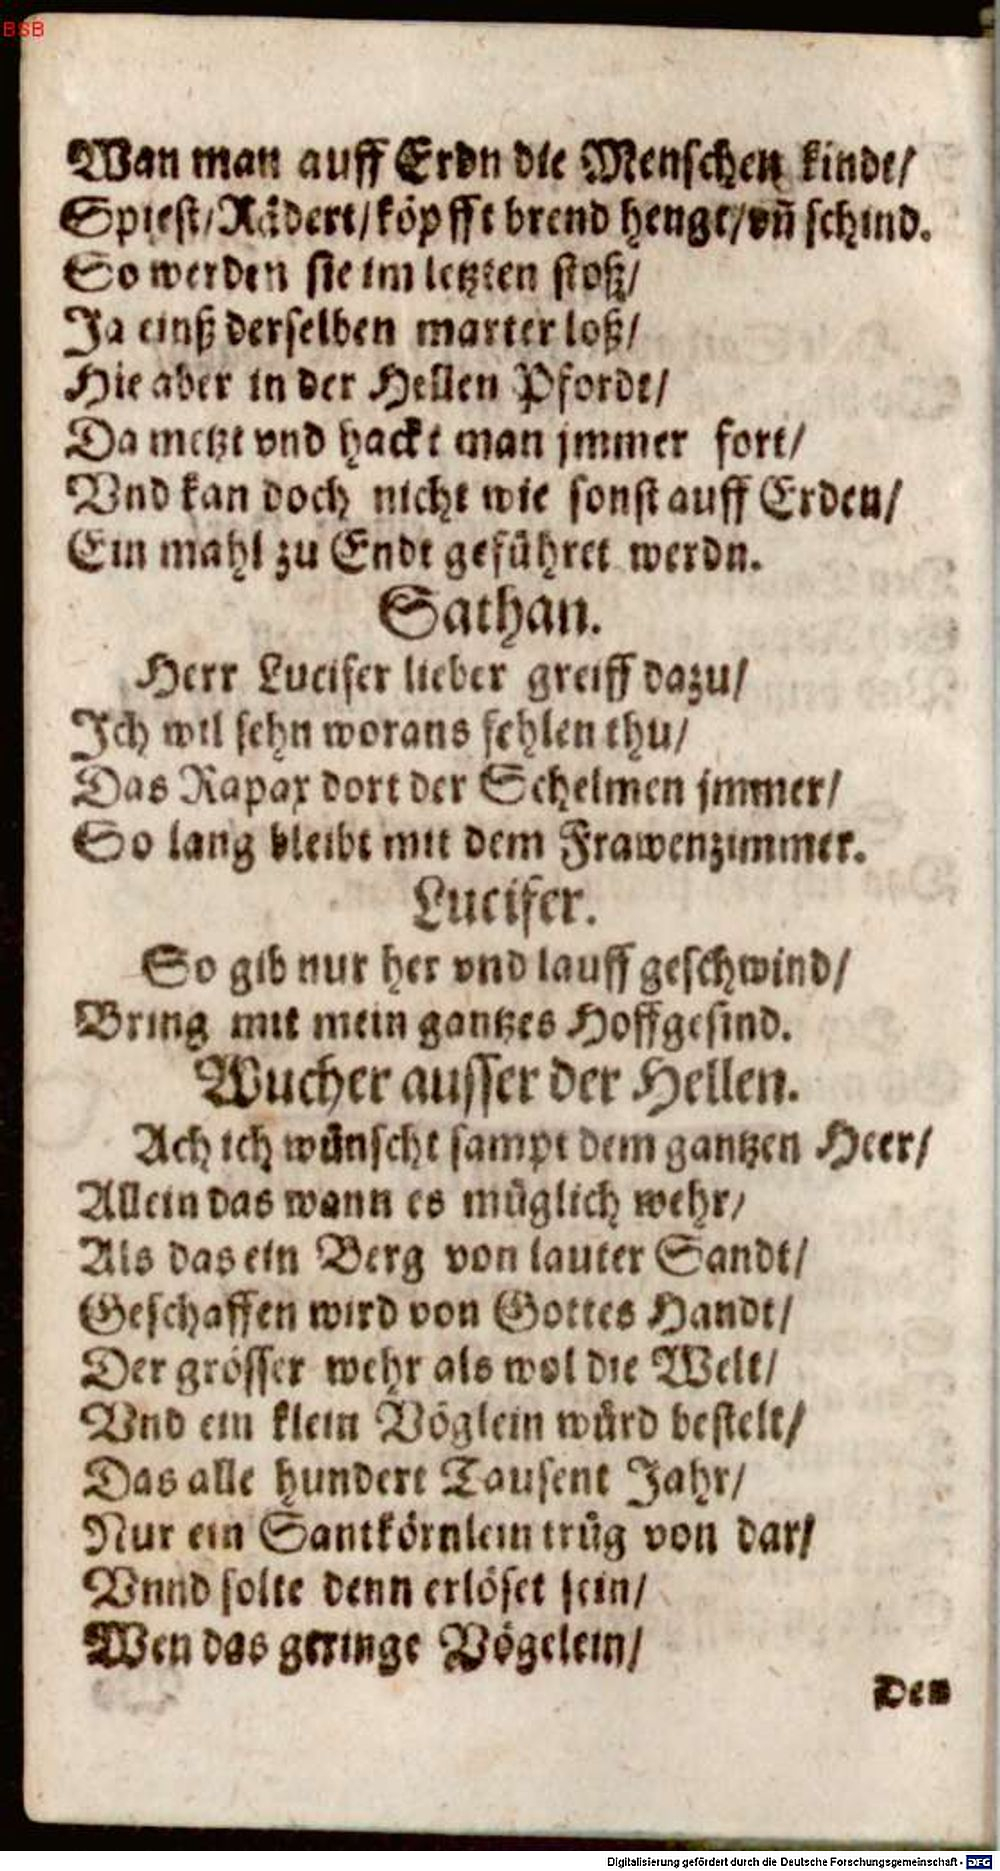 BSB
Wan man auff Erdn die Menschen kindt/
Spiest/Rådert/köpfft brend hengt/vñ schind.
So werden sie im letzten stoß/
Ja einß derselben marter loß/
Hie aber in der Hellen Pfordt/
Da metzt vnd hackt man jmmer fort/
Vnd kan doch nicht wie sonst auff Erden/
Ein mahl zu Endt geführet werdn.
Sathan.
Herr Lucifer lieber greiff dazu/
Ich wil sehn worans fehlen thu/
Das Rapax dort der Schelmen jmmer/
So lang bleibt mit dem Frawenzimmer.
Lucifer.
So gib nur her vnd lauff geschwind/
Bring mit mein gantzes Hoffgesind.
Wucher ausser der Hellen.
Ach ich wünscht sampt dem gantzen Heer/
Allein das wann es müglich wehr/
Als das ein Berg von lauter Sandt/
Geschaffen wird von Gottes Handt/
Der grösser wehr als wol die Welt/
Vnd ein klein Vöglein würd bestelt/
Das alle hundert Tausent Jahr/
Nur ein Santkörnlein trüg von dar/
Vnnd solte denn erlöset sein/
Wen das geringe Vögelein/
Den
Digitalisierung gefördert durch die Deutsche Forschungsgemeinschaft - DFG